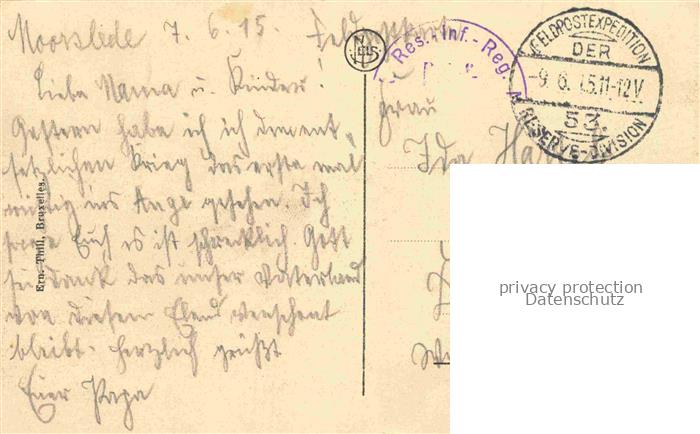 Moorslede 7. 6. 15. Feldpostkarte
Liebe Mama u. Kinder!
Gestern habe ich ich den ent-
setzlichen Krieg das erste mal
richtig ins Auge gesehen. Ich
sage Euch es ist schrecklich Gott
sei dank das unser Vaterland
von diesem Elend verschont
bleibt. Herzlich grüßt
Euer Papa
Ern. Thill, Bruxelles.
Res.-Inf.-Reg.
FELDPOSTEXPEDITION
DER
-9.6.15.11-12V.
53.
RESERVE-DIVISION
Frau
Ida
privacy protection
Datenschutz